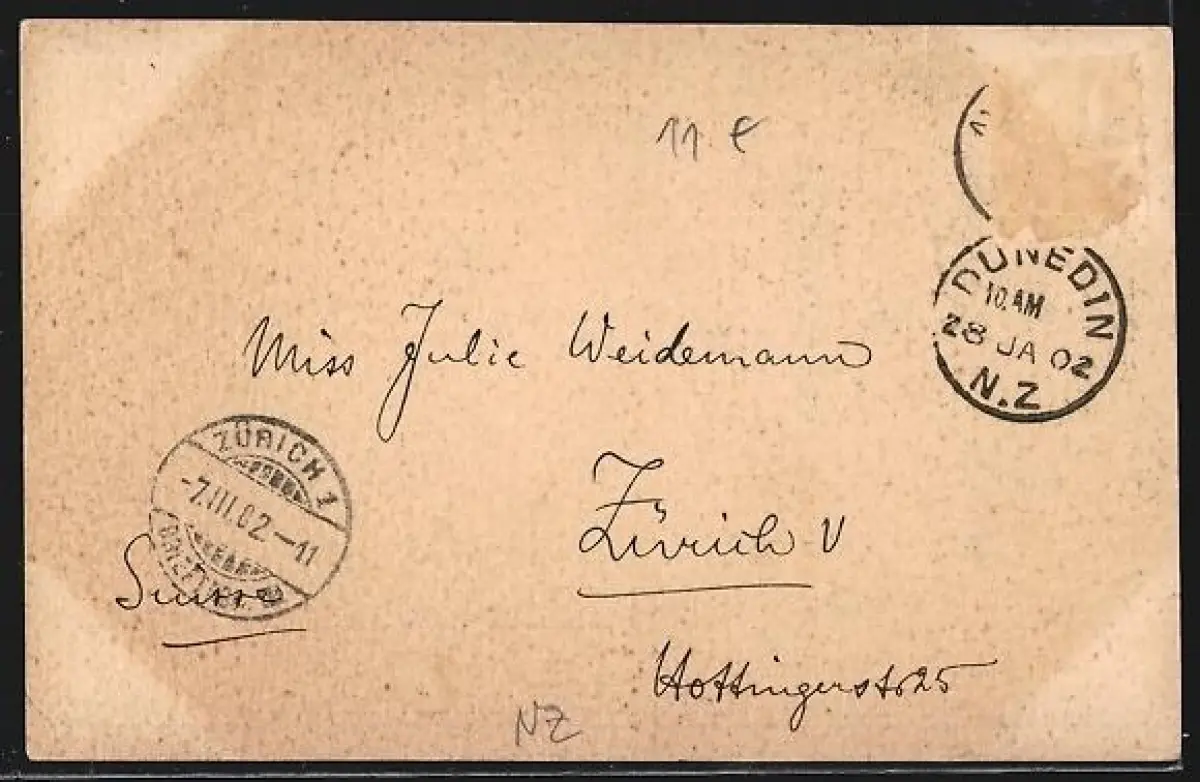 11 €
DUNEDIN
10.AM
28 JA 02
N.Z
Miss Julie Weidemann
ZÜRICH 1
-7.III.02-11
Zürich V
Suisse
Hottingerstr 25
NZ